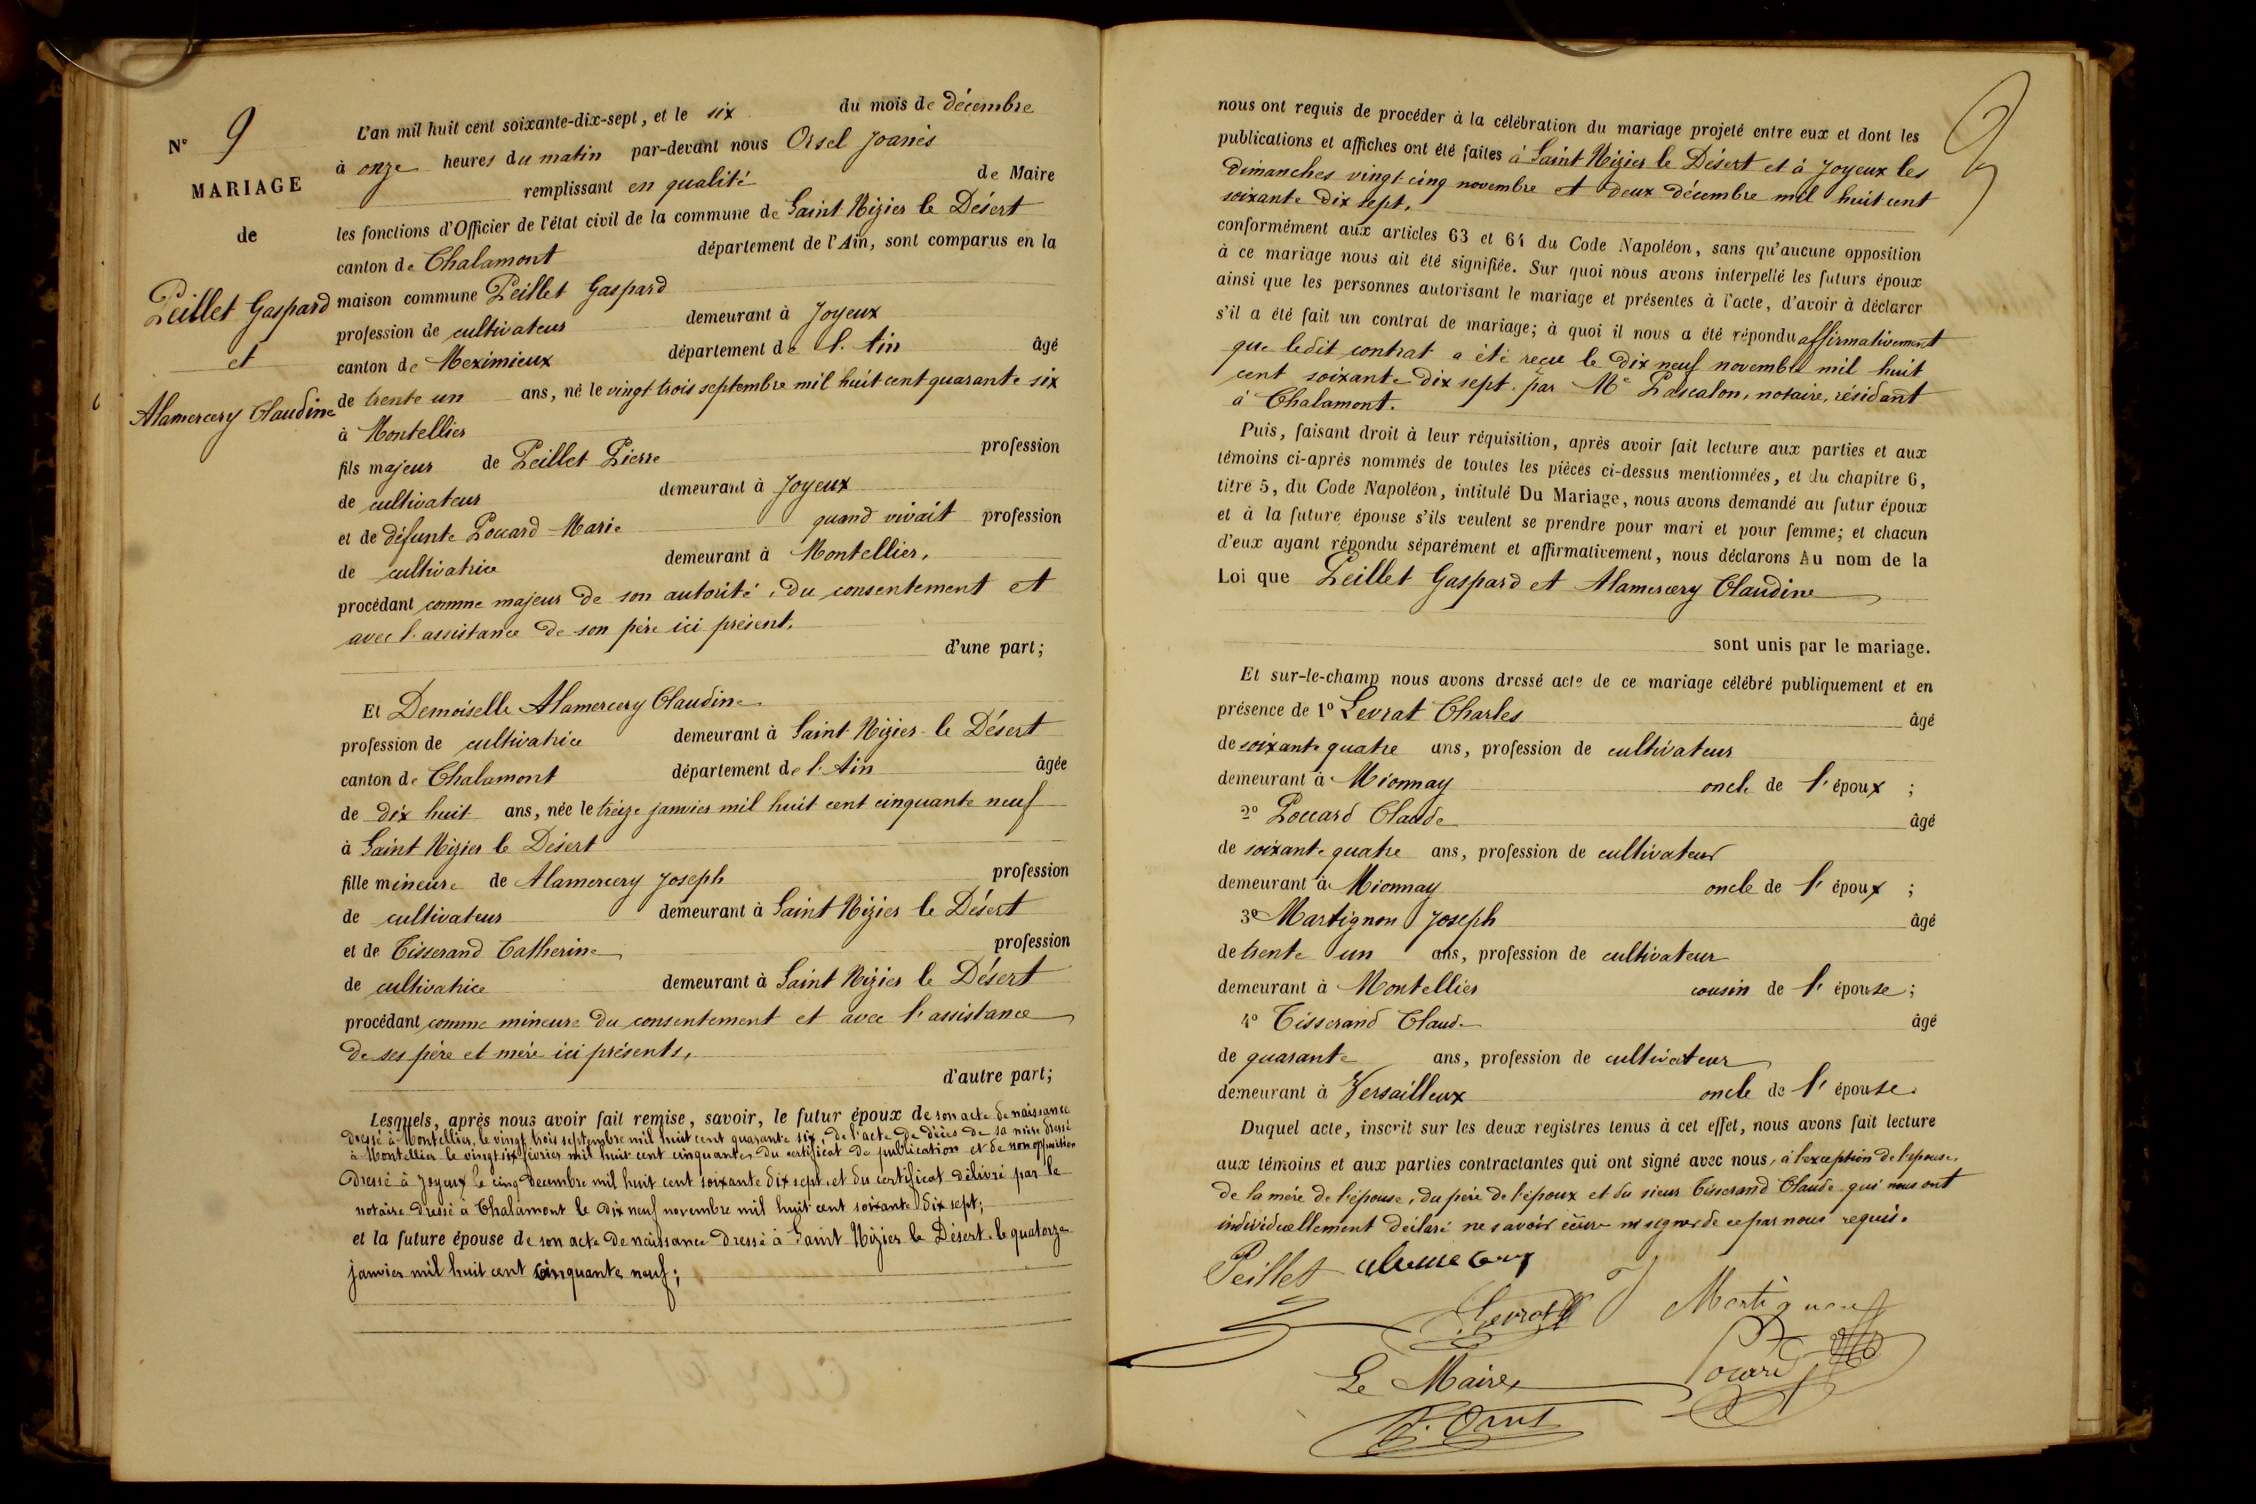 N° 9
MARIAGE
de
Peillet Gaspard
et
Alamercery Claudine
L'an mil huit cent soixante-dix-sept, et le six du mois de décembre
à onze heures du matin par-devant nous Orsel Joanès
remplissant en qualité de Maire
les fonctions d'Officier de l'état civil de la commune de Saint Nizier le Désert
canton de Chalamont département de l'Ain, sont comparus en la
maison commune Peillet Gaspard
profession de cultivateur demeurant à Joyeux
canton de Meximieux département de l'Ain âgé
de trente un ans, né le vingt trois septembre mil huit cent quarante six
à Montellier
fils majeur de Peillet Pierre profession
de cultivateur demeurant à Joyeux
et de défunte Poccard Marie quand vivait profession
de cultivatrice demeurant à Montellier,
procédant comme majeur de son autorité, du consentement et
avec l'assistance de son père ici présent,
d'une part;
Et Demoiselle Alamercery Claudine
profession de cultivatrice demeurant à Saint Nizier le Désert
canton de Chalamont département de l'Ain âgée
de dix huit ans, née le treize janvier mil huit cent cinquante neuf
à Saint Nizier le Désert
fille mineure de Alamercery Joseph profession
de cultivateur demeurant à Saint Nizier le Désert
et de Tisserand Catherine profession
de cultivatrice demeurant à Saint Nizier le Désert
procédant comme mineure du consentement et avec l'assistance
de ses père et mère ici présents,
d'autre part;
Lesquels, après nous avoir fait remise, savoir, le futur époux de son acte de naissance
dressé à Montellier, le vingt trois septembre mil huit cent quarante six, de l'acte de décès de sa mère dressé
à Montellier le vingt six février mil huit cent cinquante, du certificat de publication et de non opposition
dressé à Joyeux le cinq décembre mil huit cent soixante dix sept, et du certificat délivré par le
notaire dressé à Chalamont le dix neuf novembre mil huit cent soixante dix sept;
et la future épouse de son acte de naissance dressé à Saint Nizier le Désert le quatorze
janvier mil huit cent cinquante neuf;
9
nous ont requis de procéder à la célébration du mariage projeté entre eux et dont les
publications et affiches ont été faites à Saint Nizier le Désert et à Joyeux les
dimanches vingt cinq novembre et deux décembre mil huit cent
soixante dix sept,
conformément aux articles 63 et 64 du Code Napoléon, sans qu'aucune opposition
à ce mariage nous ait été signifiée. Sur quoi nous avons interpellé les futurs époux
ainsi que les personnes autorisant le mariage et présentes à l'acte, d'avoir à déclarer
s'il a été fait un contrat de mariage; à quoi il nous a été répondu affirmativement
que ledit contrat a été reçu le dix neuf novembre mil huit
cent soixante dix sept par Me Pascalon, notaire, résidant
à Chalamont.
Puis, faisant droit à leur réquisition, après avoir fait lecture aux parties et aux
témoins ci-après nommés de toutes les pièces ci-dessus mentionnées, et du chapitre 6,
titre 5, du Code Napoléon, intitulé Du Mariage, nous avons demandé au futur époux
et à la future épouse s'ils veulent se prendre pour mari et pour femme; et chacun
d'eux ayant répondu séparément et affirmativement, nous déclarons Au nom de la
Loi que Peillet Gaspard et Alamercery Claudine
sont unis par le mariage.
Et sur-le-champ nous avons dressé acte de ce mariage célébré publiquement et en
présence de 1° Levrat Charles âgé
de soixante quatre ans, profession de cultivateur
demeurant à Mionnay oncle de l'époux ;
2° Poccard Claude âgé
de soixante quatre ans, profession de cultivateur
demeurant à Mionnay oncle de l'époux ;
3° Martignon Joseph âgé
de trente un ans, profession de cultivateur
demeurant à Montellier cousin de l'épouse ;
4° Tisserand Claude âgé
de quarante ans, profession de cultivateur
demeurant à Versailleux oncle de l'épouse.
Duquel acte, inscrit sur les deux registres tenus à cet effet, nous avons fait lecture
aux témoins et aux parties contractantes qui ont signé avec nous, à l'exception de l'épouse,
de la mère de l'épouse, du père de l'époux et du sieur Tisserand Claude qui nous ont
individuellement déclaré ne savoir écrire ni signer de ce par nous requis.
Peillet
Levrat
Martignon
Le Maire,
Pocard